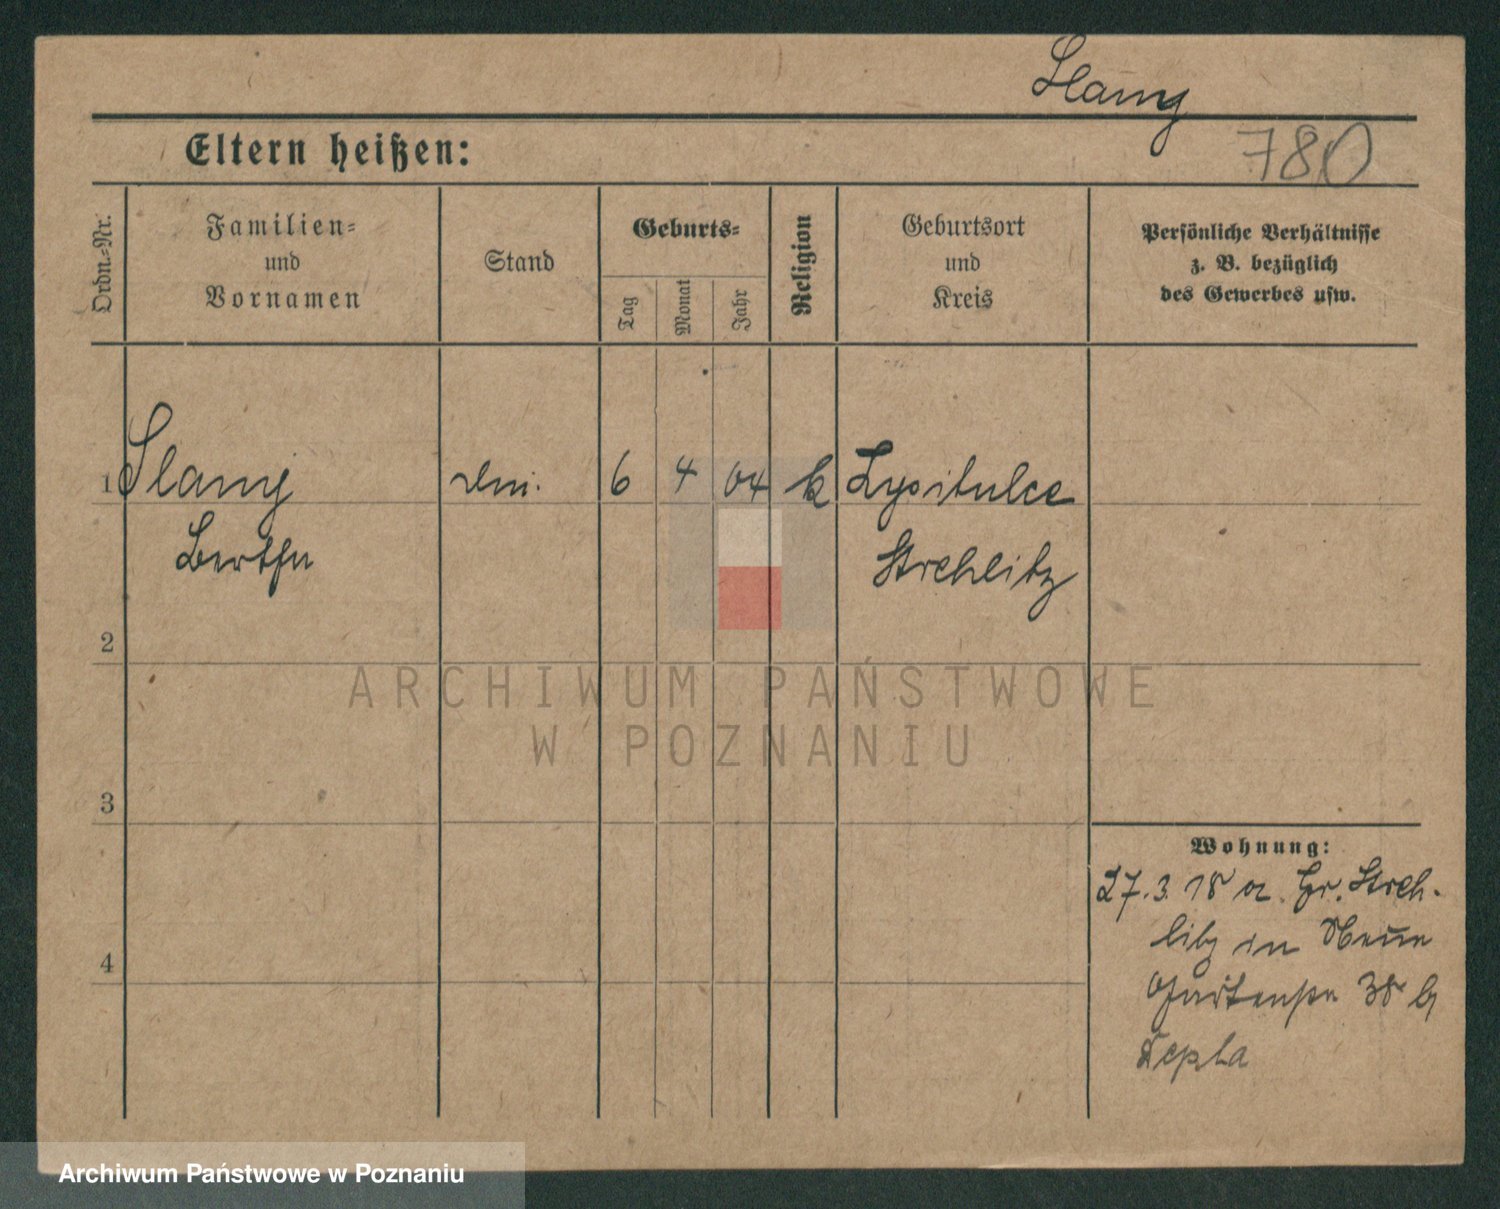 Slamy
780
Eltern heißen:
Ordn.=Nr.
Familien=
und
Vornamen
Stand
Geburts=
Tag
Monat
Jahr
Religion
Geburtsort
und
Kreis
Persönliche Verhältnisse
z. B. bezüglich
des Gewerbes usw.
1 Slamy 6 4 04 k
Bertha Strehlitz
2
ARCHIWUM PAŃSTWOWE
W POZNANIU
3
Wohnung:
27.3.18 a. Gr. Streh-
litz in Neue
Gartenstr 38 b
4
Archiwum Państwowe w Poznaniu